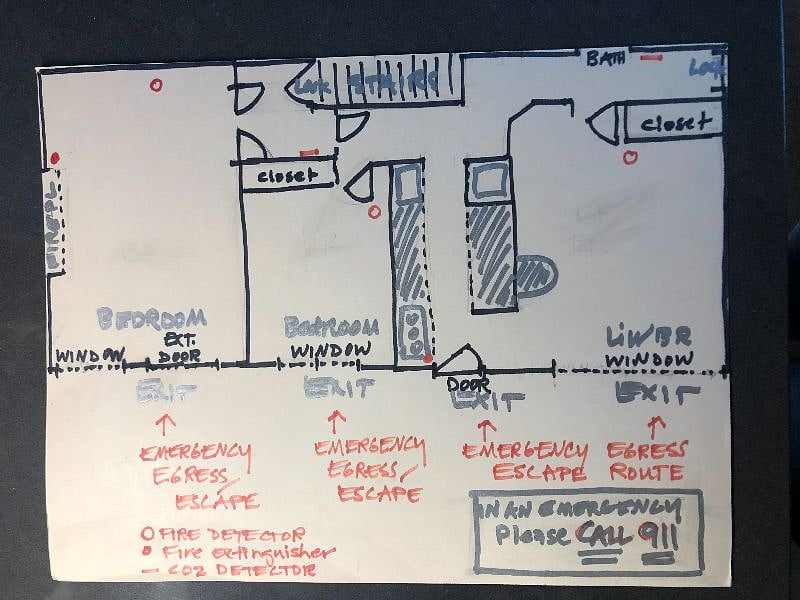 BATH
Lock
Lock
STAIRS
closet
closet
FIREPL
BEDROOM
BedRooM
LiV/BR
EXT.
DOOR
WINDOW
WINDOW
WINDOW
DOOR
EXIT
EXIT
EXIT
EXIT
EMERGENCY
EGRESS/
ESCAPE
EMERGENCY
EGRESS/
ESCAPE
EMERGENCY
ESCAPE
EGRESS
ROUTE
FIRE DETECTOR
Fire extinguisher
CO2 DETECTOR
IN AN EMERGENCY
Please CALL 911